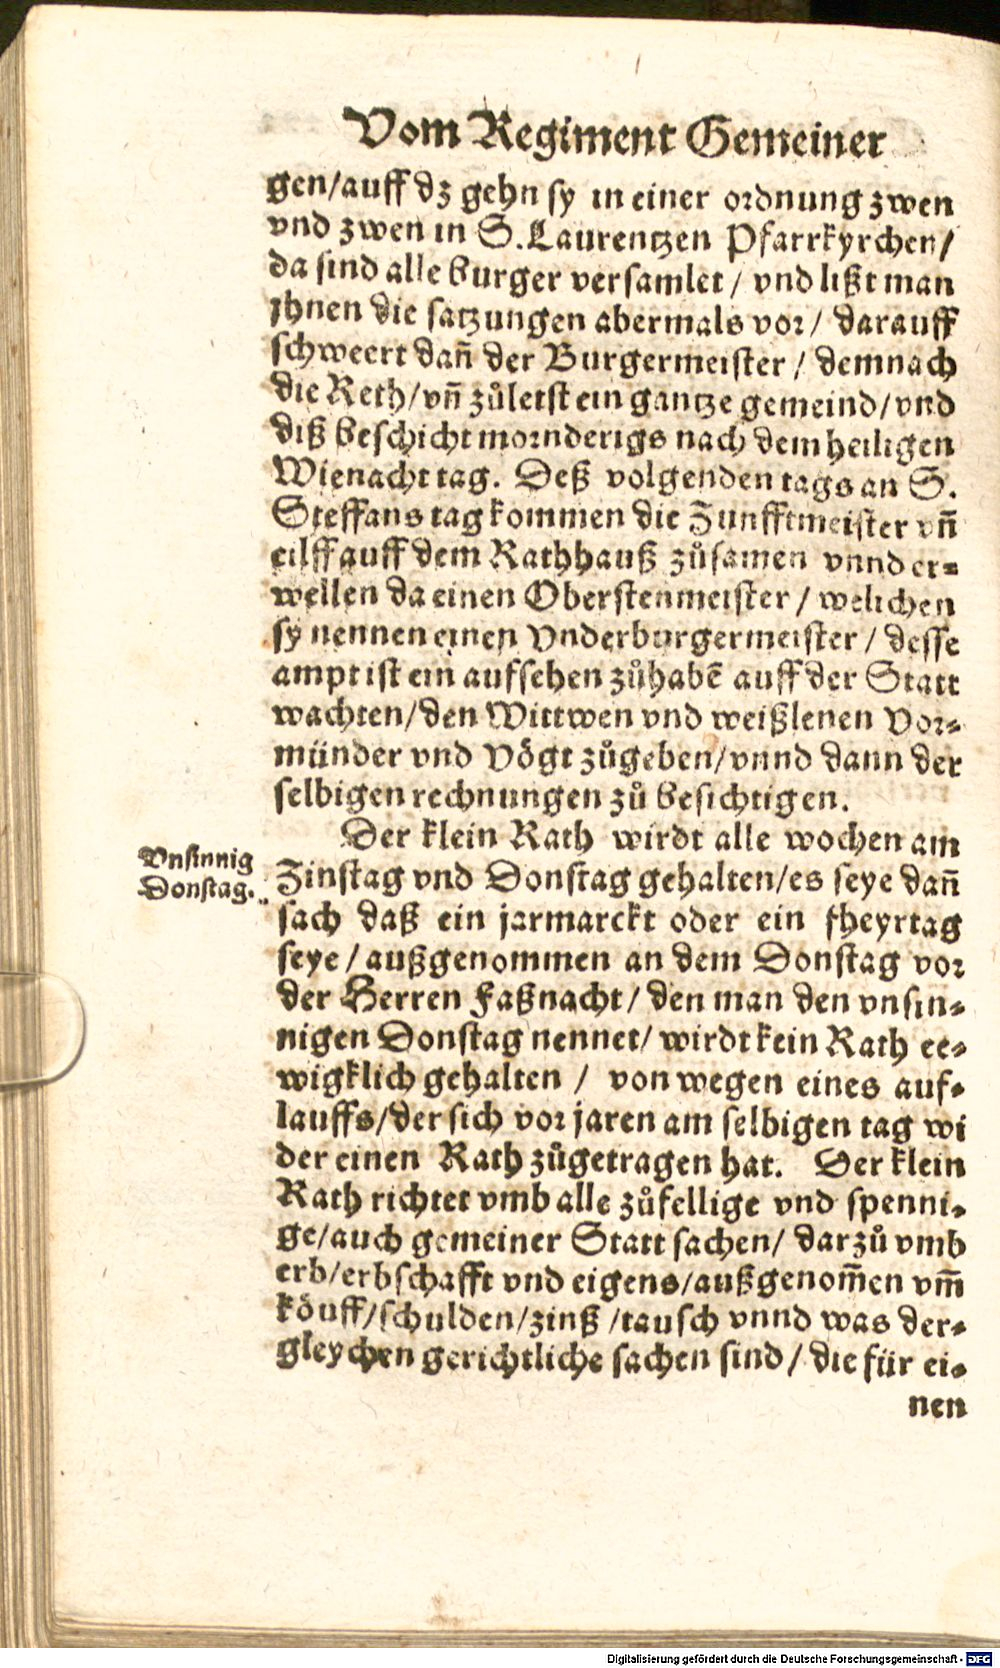 Vom Regiment Gemeiner
gen/auff dz gehn sy in einer ordnung zwen
vnd zwen in S. Laurentzen Pfarrkyrchen/
da sind alle burger versamlet / vnd lißt man
jhnen die satzungen abermals vor / darauff
schweert dañ der Burgermeister / demnach
die Reth/vñ zůletst ein gantze gemeind/vnd
diß beschicht mornderigs nach dem heiligen
Wienacht tag. Deß volgenden tags an S.
Steffans tag kommen die Zunfftmeister vñ
eilff auff dem Rathhauß zůsamen vnnd er-
wellen da einen Oberstenmeister / welichen
sy nennen einen Vnderburgermeister / desse
ampt ist ein aufsehen zůhabē auff der Statt
wachten/den Wittwen vnd weißlenen Vor-
münder vnd Vögt zůgeben/vnnd dann der
selbigen rechnungen zů besichtigen.
Der klein Rath wirdt alle wochen am
Vnsinnig
Donstag.
Zinstag vnd Donstag gehalten/es seye dañ
sach daß ein jarmarckt oder ein fheyrtag
seye / außgenommen an dem Donstag vor
der Herren Faßnacht/ den man den vnsin-
nigen Donstag nennet/ wirdt kein Rath ee-
wigklich gehalten / von wegen eines auf-
lauffs/der sich vor jaren am selbigen tag wi
der einen Rath zůgetragen hat. Der klein
Rath richtet vmb alle zůfellige vnd spenni-
ge/auch gemeiner Statt sachen/ darzů vmb
erb/erbschafft vnd eigens/außgenom̄en vm̄
köuff/schulden/zinß /tausch vnnd was der-
gleychen gerichtliche sachen sind / die für ei-
nen
Digitalisierung gefördert durch die Deutsche Forschungsgemeinschaft - DFG